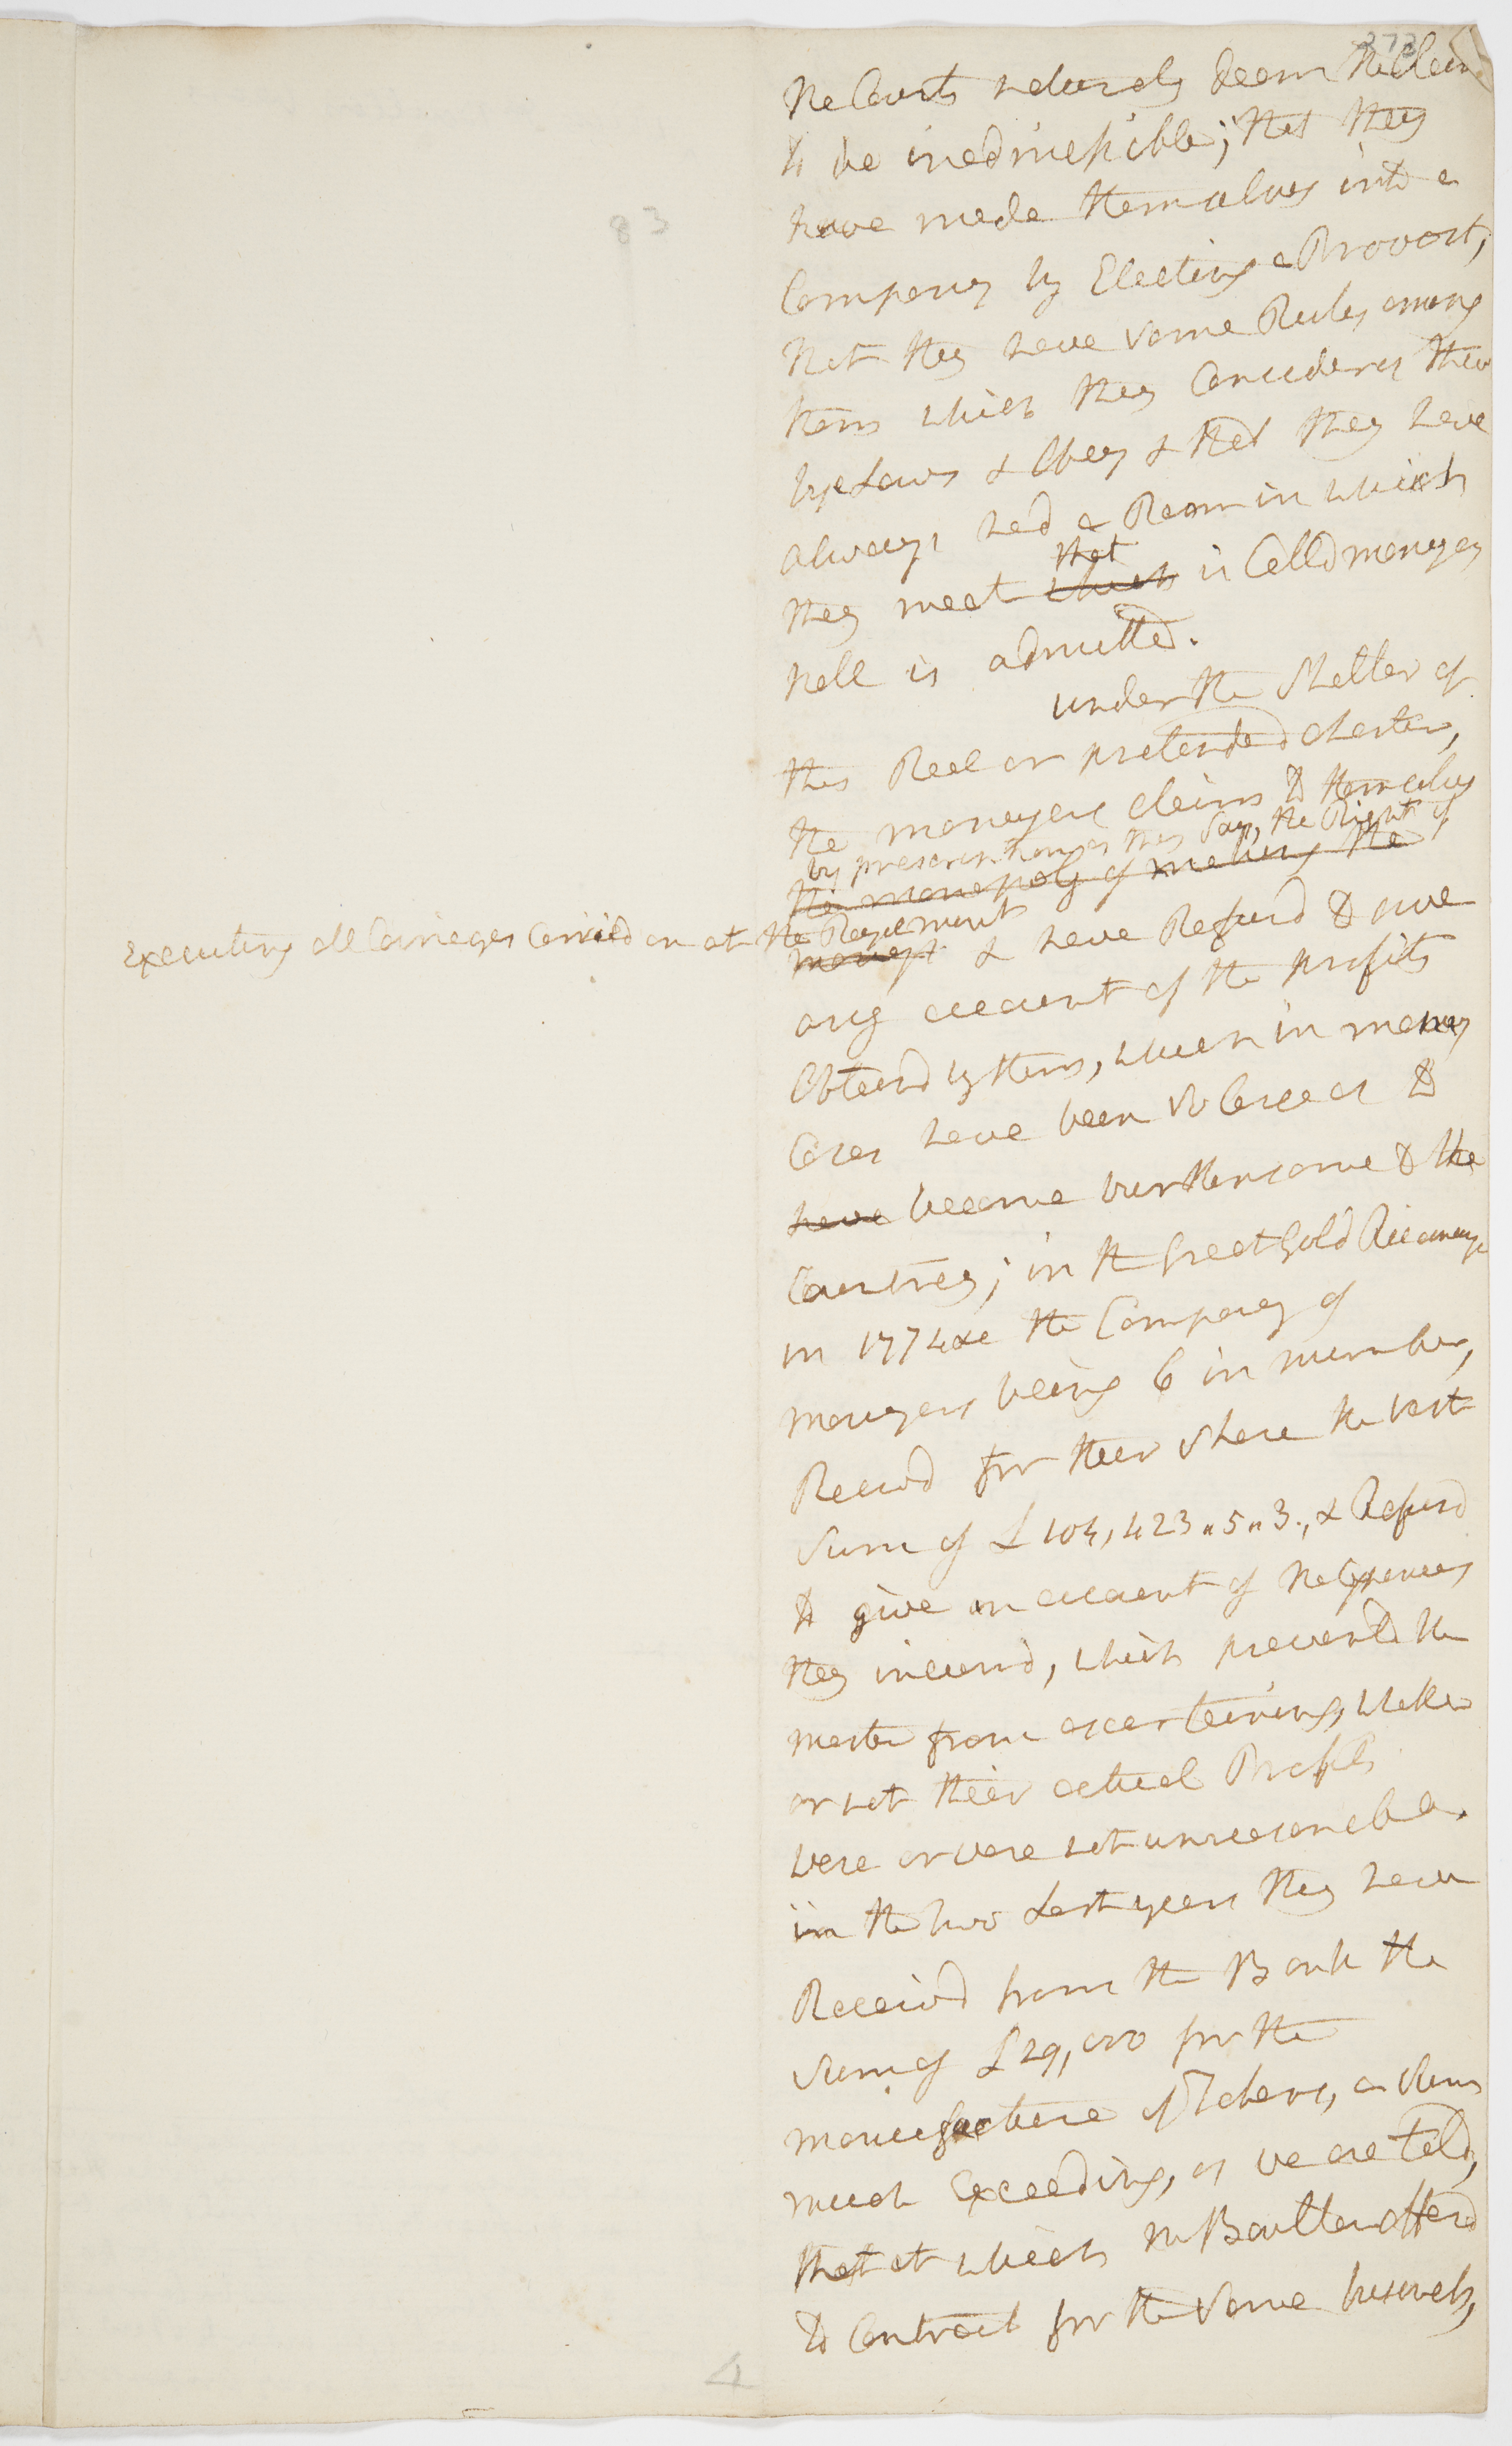 373
83
the Courts naturaly deem the Claim
to be inadmissible; that they
have made themselves into a
Company by Electing a Provost,
that they have some Rules among
them which they Consider as their
bye Laws & Obey & that they have
always had a Room in which
they meet that which is Calld moneyers
hall is admitted.
under the Shelter of
this Real or pretended charter,
the moneyers claim to themselves
by prescription as they Say, the Right of
the monopoly of making the
Executing all Coinages Carried on at the Royal mint
moneys & have Refusd to give
any account of the profits
Obtaind by them, which in many
Cases have been So Large as to
have become burthensome to the
Countrey; in the great Gold Recoinage
in 1774 &c the Company of
moneyers being 6 in number,
Receivd for their Share the vast
Sum of £104,423 " 5 " 3., & Refusd
to give an account of the Expences
they incurrd, which prevented the
master from ascertaining, whether
or not their actual Profits
were or were not unreasonable.
in the two Last years they have
Receivd from the Bank the
Sum of £29,000 for the
manufacture of Tokens, a Sum
much Exceeding, as we are told,
that at which Mr Boulton offerd
to Contract for the Same business,
4